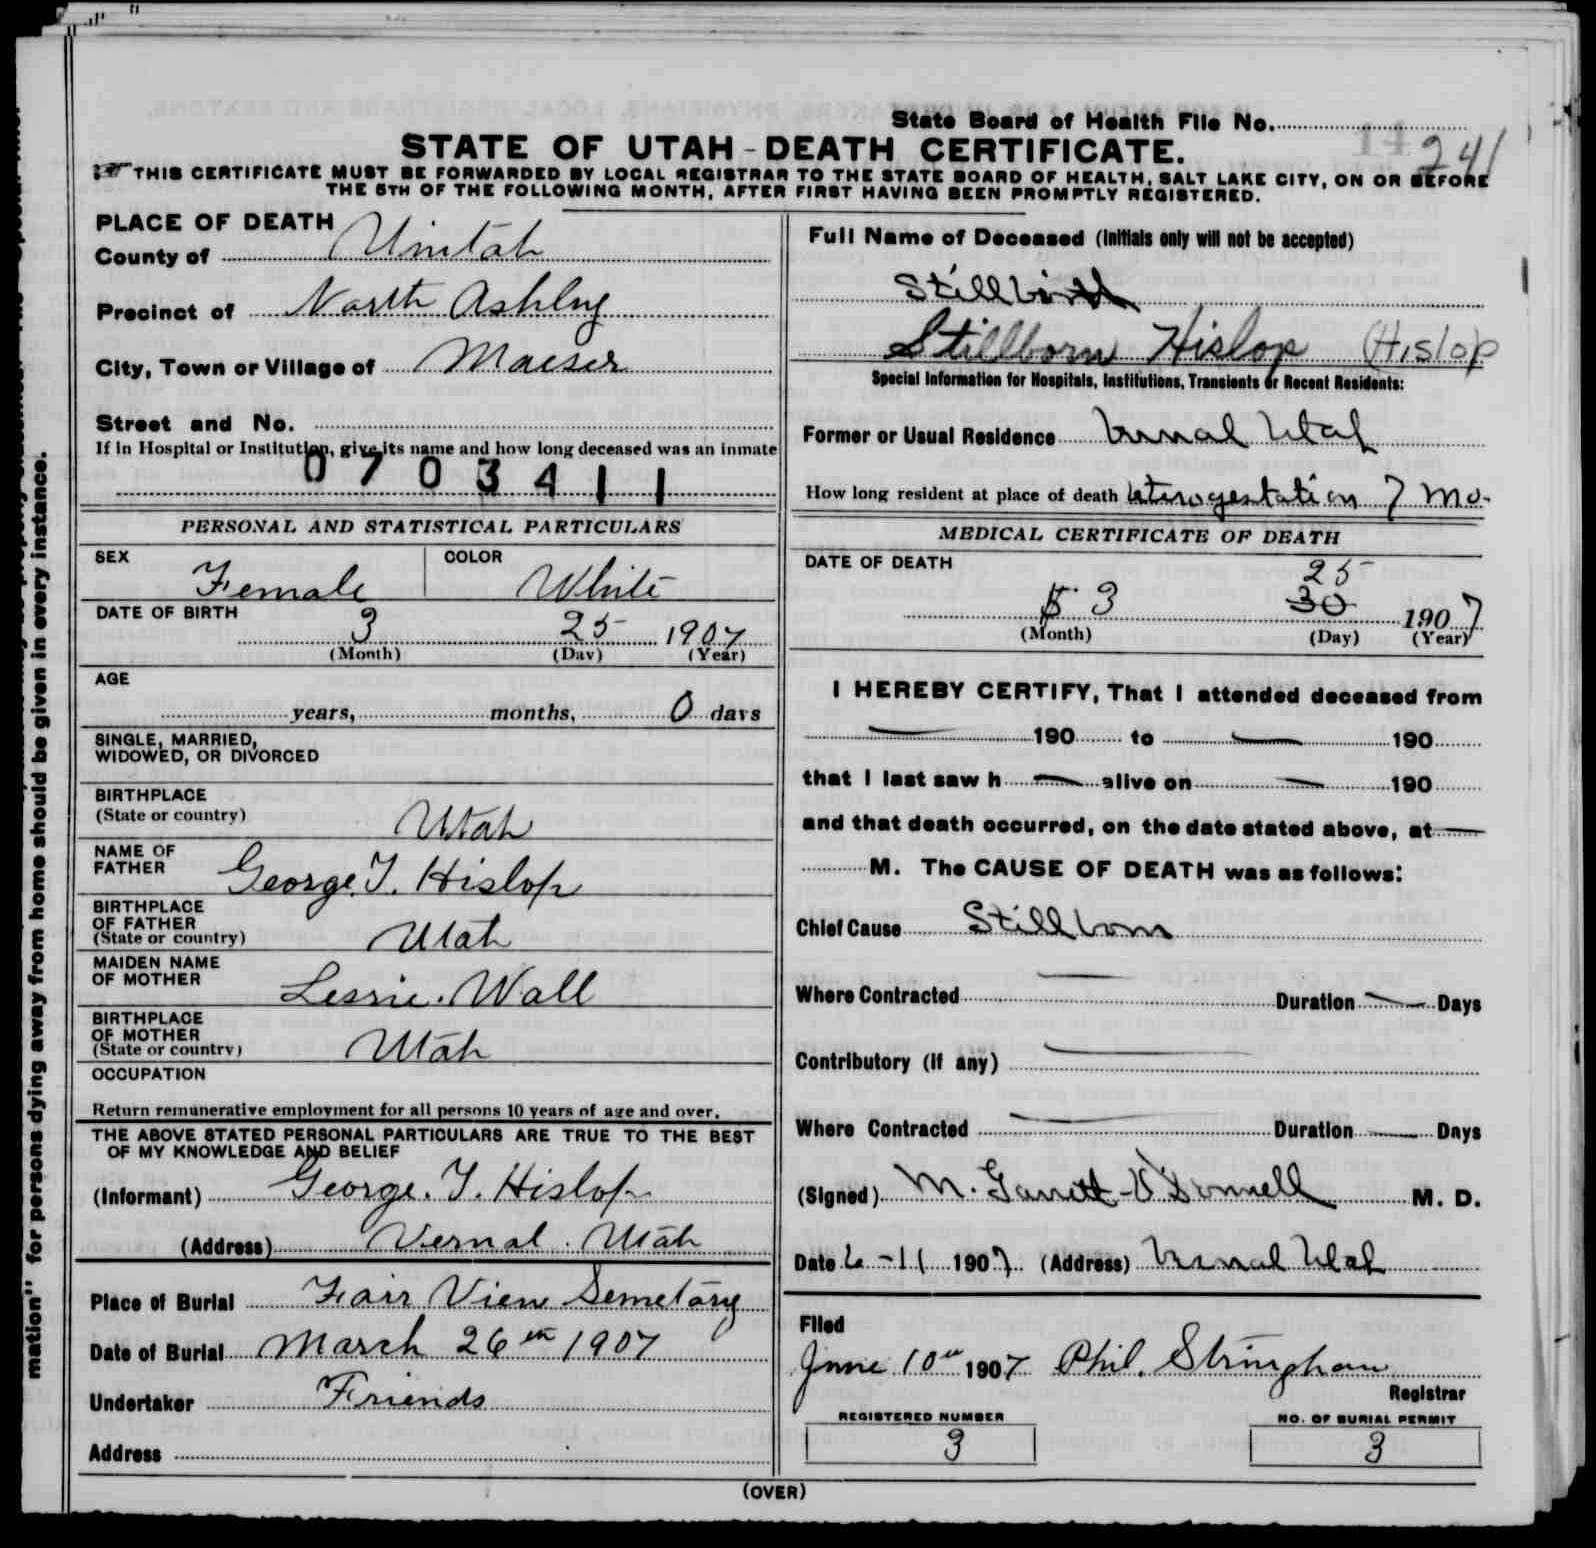 State Board of Health File No.
241
STATE OF UTAH - DEATH CERTIFICATE.
THIS CERTIFICATE MUST BE FORWARDED BY LOCAL REGISTRAR TO THE STATE BOARD OF HEALTH, SALT LAKE CITY, ON OR BEFORE
THE 5TH OF THE FOLLOWING MONTH, AFTER FIRST HAVING BEEN PROMPTLY REGISTERED.
PLACE OF DEATH
County of Uintah
Precinct of North Ashley
City, Town or Village of Maeser
Street and No.
If in Hospital or Institution, give its name and how long deceased was an inmate
0703411
PERSONAL AND STATISTICAL PARTICULARS
SEX Female COLOR White
DATE OF BIRTH
3 25 1907
(Month) (Day) (Year)
AGE
years, months, 0 days
SINGLE, MARRIED,
WIDOWED, OR DIVORCED
BIRTHPLACE
(State or country) Utah
NAME OF
FATHER George. T. Hislop
BIRTHPLACE
OF FATHER
(State or country) Utah
MAIDEN NAME
OF MOTHER Lessie. Wall
BIRTHPLACE
OF MOTHER
(State or country) Utah
OCCUPATION
Return remunerative employment for all persons 10 years of age and over.
THE ABOVE STATED PERSONAL PARTICULARS ARE TRUE TO THE BEST
OF MY KNOWLEDGE AND BELIEF
(Informant) George. T. Hislop
(Address) Vernal. Utah
Place of Burial Fair View Semetary
Date of Burial March 26th 1907
Undertaker Friends
Address
Full Name of Deceased (Initials only will not be accepted)
Stillbirth
Stillborn Hislop (Hislop
Special Information for Hospitals, Institutions, Transients or Recent Residents:
Former or Usual Residence Vernal Utah
How long resident at place of death Uterogestation 7 Mo.
MEDICAL CERTIFICATE OF DEATH
DATE OF DEATH
25
3 30 1907
(Month) (Day) (Year)
I HEREBY CERTIFY, That I attended deceased from
— 190 to — 190
that I last saw h — alive on — 190
and that death occurred, on the date stated above, at —
M. The CAUSE OF DEATH was as follows:
Chief Cause Stillborn
Where Contracted — Duration — Days
Contributory (if any) —
Where Contracted — Duration — Days
(Signed) M. Garrett O'Donnell M. D.
Date 6-11 1907 (Address) Vernal Utah
Filed
June 10th 1907 Phil. Stringham
Registrar
REGISTERED NUMBER
3
NO. OF BURIAL PERMIT
3
(OVER)
mation" for persons dying away from home should be given in every instance.